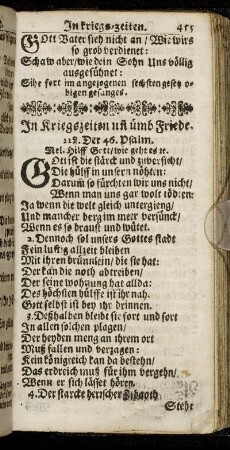 In kriegs-zeiten. 455
GOtt Vater sieh nicht an / Wie wirs
so grob verdienet:
Schaw aber / wie dein Sohn Uns völlig
außgesühnet:
Sihe fort im angezogenen sechsten gesetz o-
bigen gesanges.
In Kriegszeiten uñ umb Friede.
218. Der 46. Psalm.
Mel. Hilff Gott / wie geht es ꝛc.
GOtt ist die stärck und zuversicht /
Die hülff in unsern nöhten:
Darumb so fürchten wir uns nicht /
Wenn man uns gar wolt tödten:
Ja wenn die welt gleich untergieng /
Und mancher berg im meer versünck /
Wenn es so braust und wütet.
2. Dennoch sol unsers Gottes stadt
Fein lustig allzeit bleiben
Mit ihren brünnlein / die sie hat:
Der kan die noht abtreiben /
Der seine wohnung hat allda:
Des höchsten hülffe ist ihr nah.
Gott selbst ist bey ihr drinnen.
3. Deßhalben bleibt sie fort und fort
In allen solchen plagen /
Der heyden meng an ihrem ort
Muß fallen und verzagen:
Kein königreich kan da bestehn /
Das erdreich muß für ihm vergehn /
Wenn er sich lässet hören.
4. Der starcke herischer Zebaoth
Steht